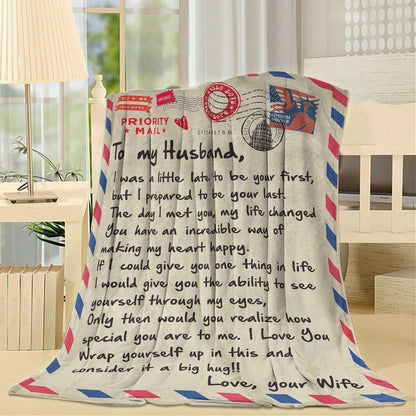 PRIORITY
MAIL
To my Husband,
I was a little late to be your first,
but I prepared to be your last.
The day I met you, my life changed
You have an incredible way of
making my heart happy.
If I could give you one thing in life
I would give you the ability to see
yourself through my eyes,
Only then would you realize how
special you are to me. I Love You
Wrap yourself up in this and
consider it a big hug!!
Love, your Wife